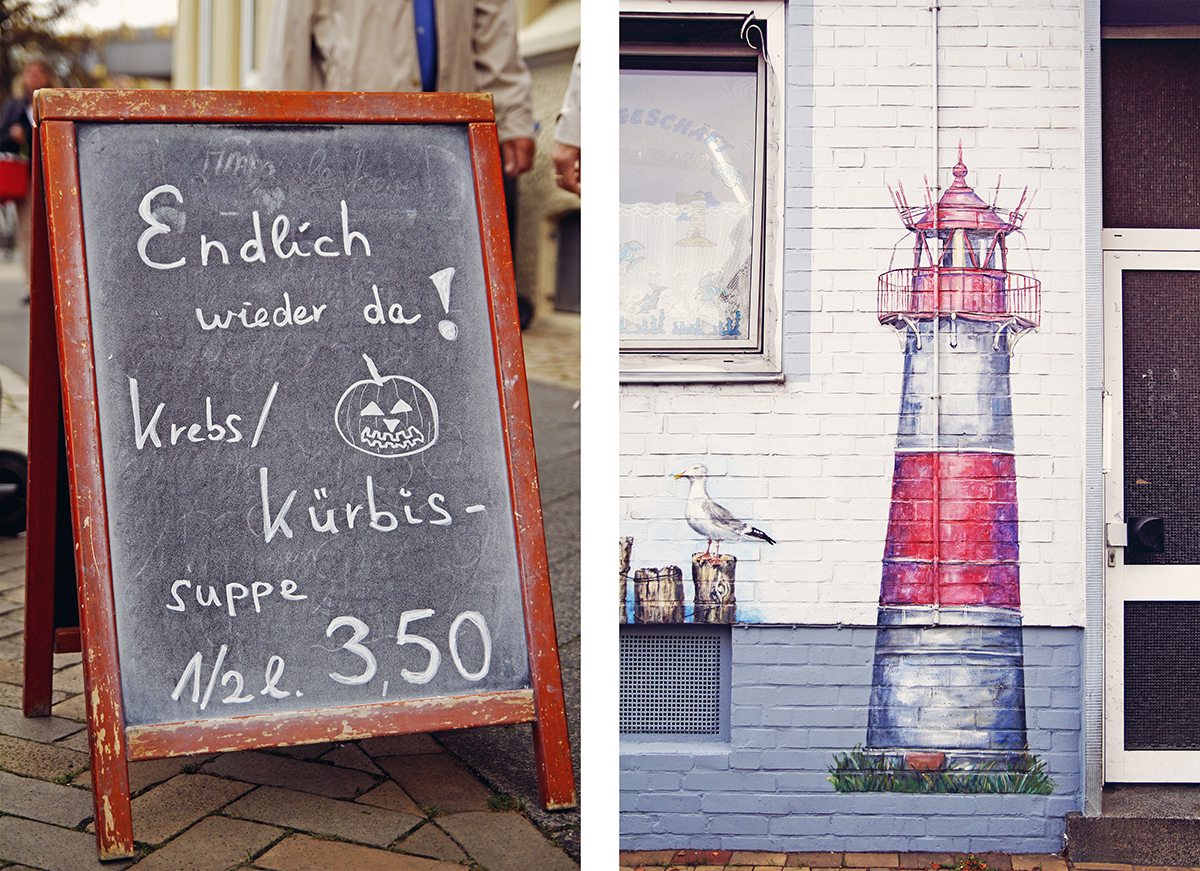 Endlich
wieder da!
Krebs/
Kürbis-
suppe
1/2 l. 3,50
GESCHÄFT